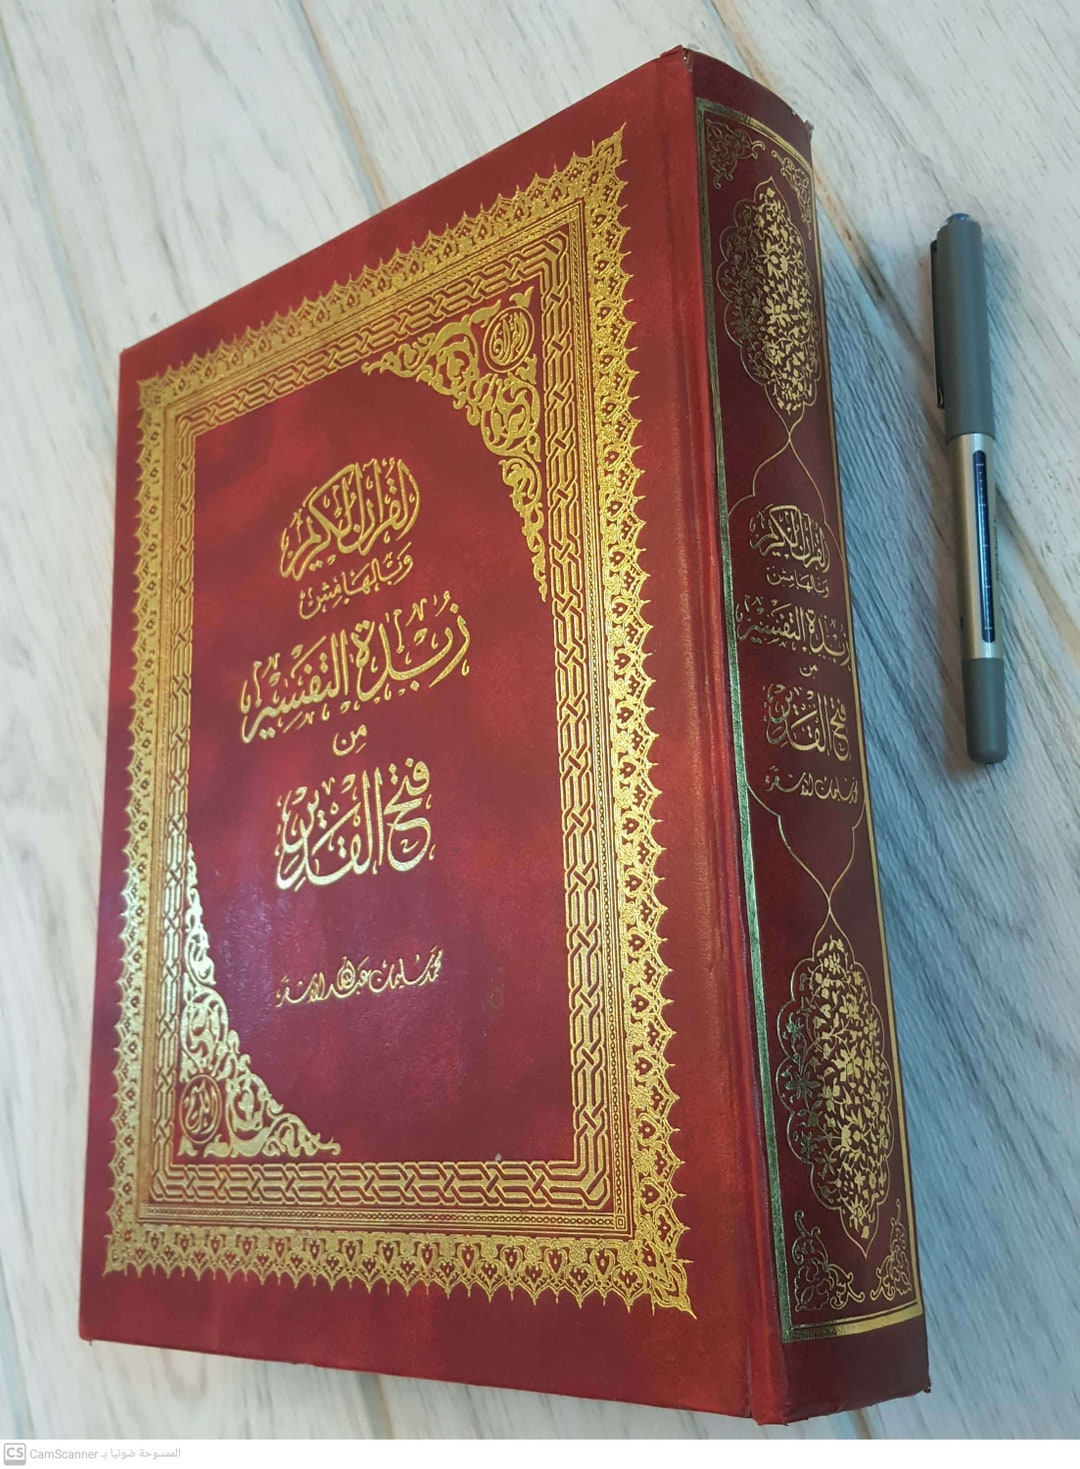 القرآن الكريم
وبالهامش
زُبْدَةُ التَّفْسِيْرِ
مِن
فَتْحِ القَدِيْرِ
محمد سليمان عبد الله الأشقر
القرآن الكريم
وبالهامش
زبدة التفسير
من
فتح القدير
محمد سليمان الأشقر
CS CamScanner الممسوحة ضوئيا بـ